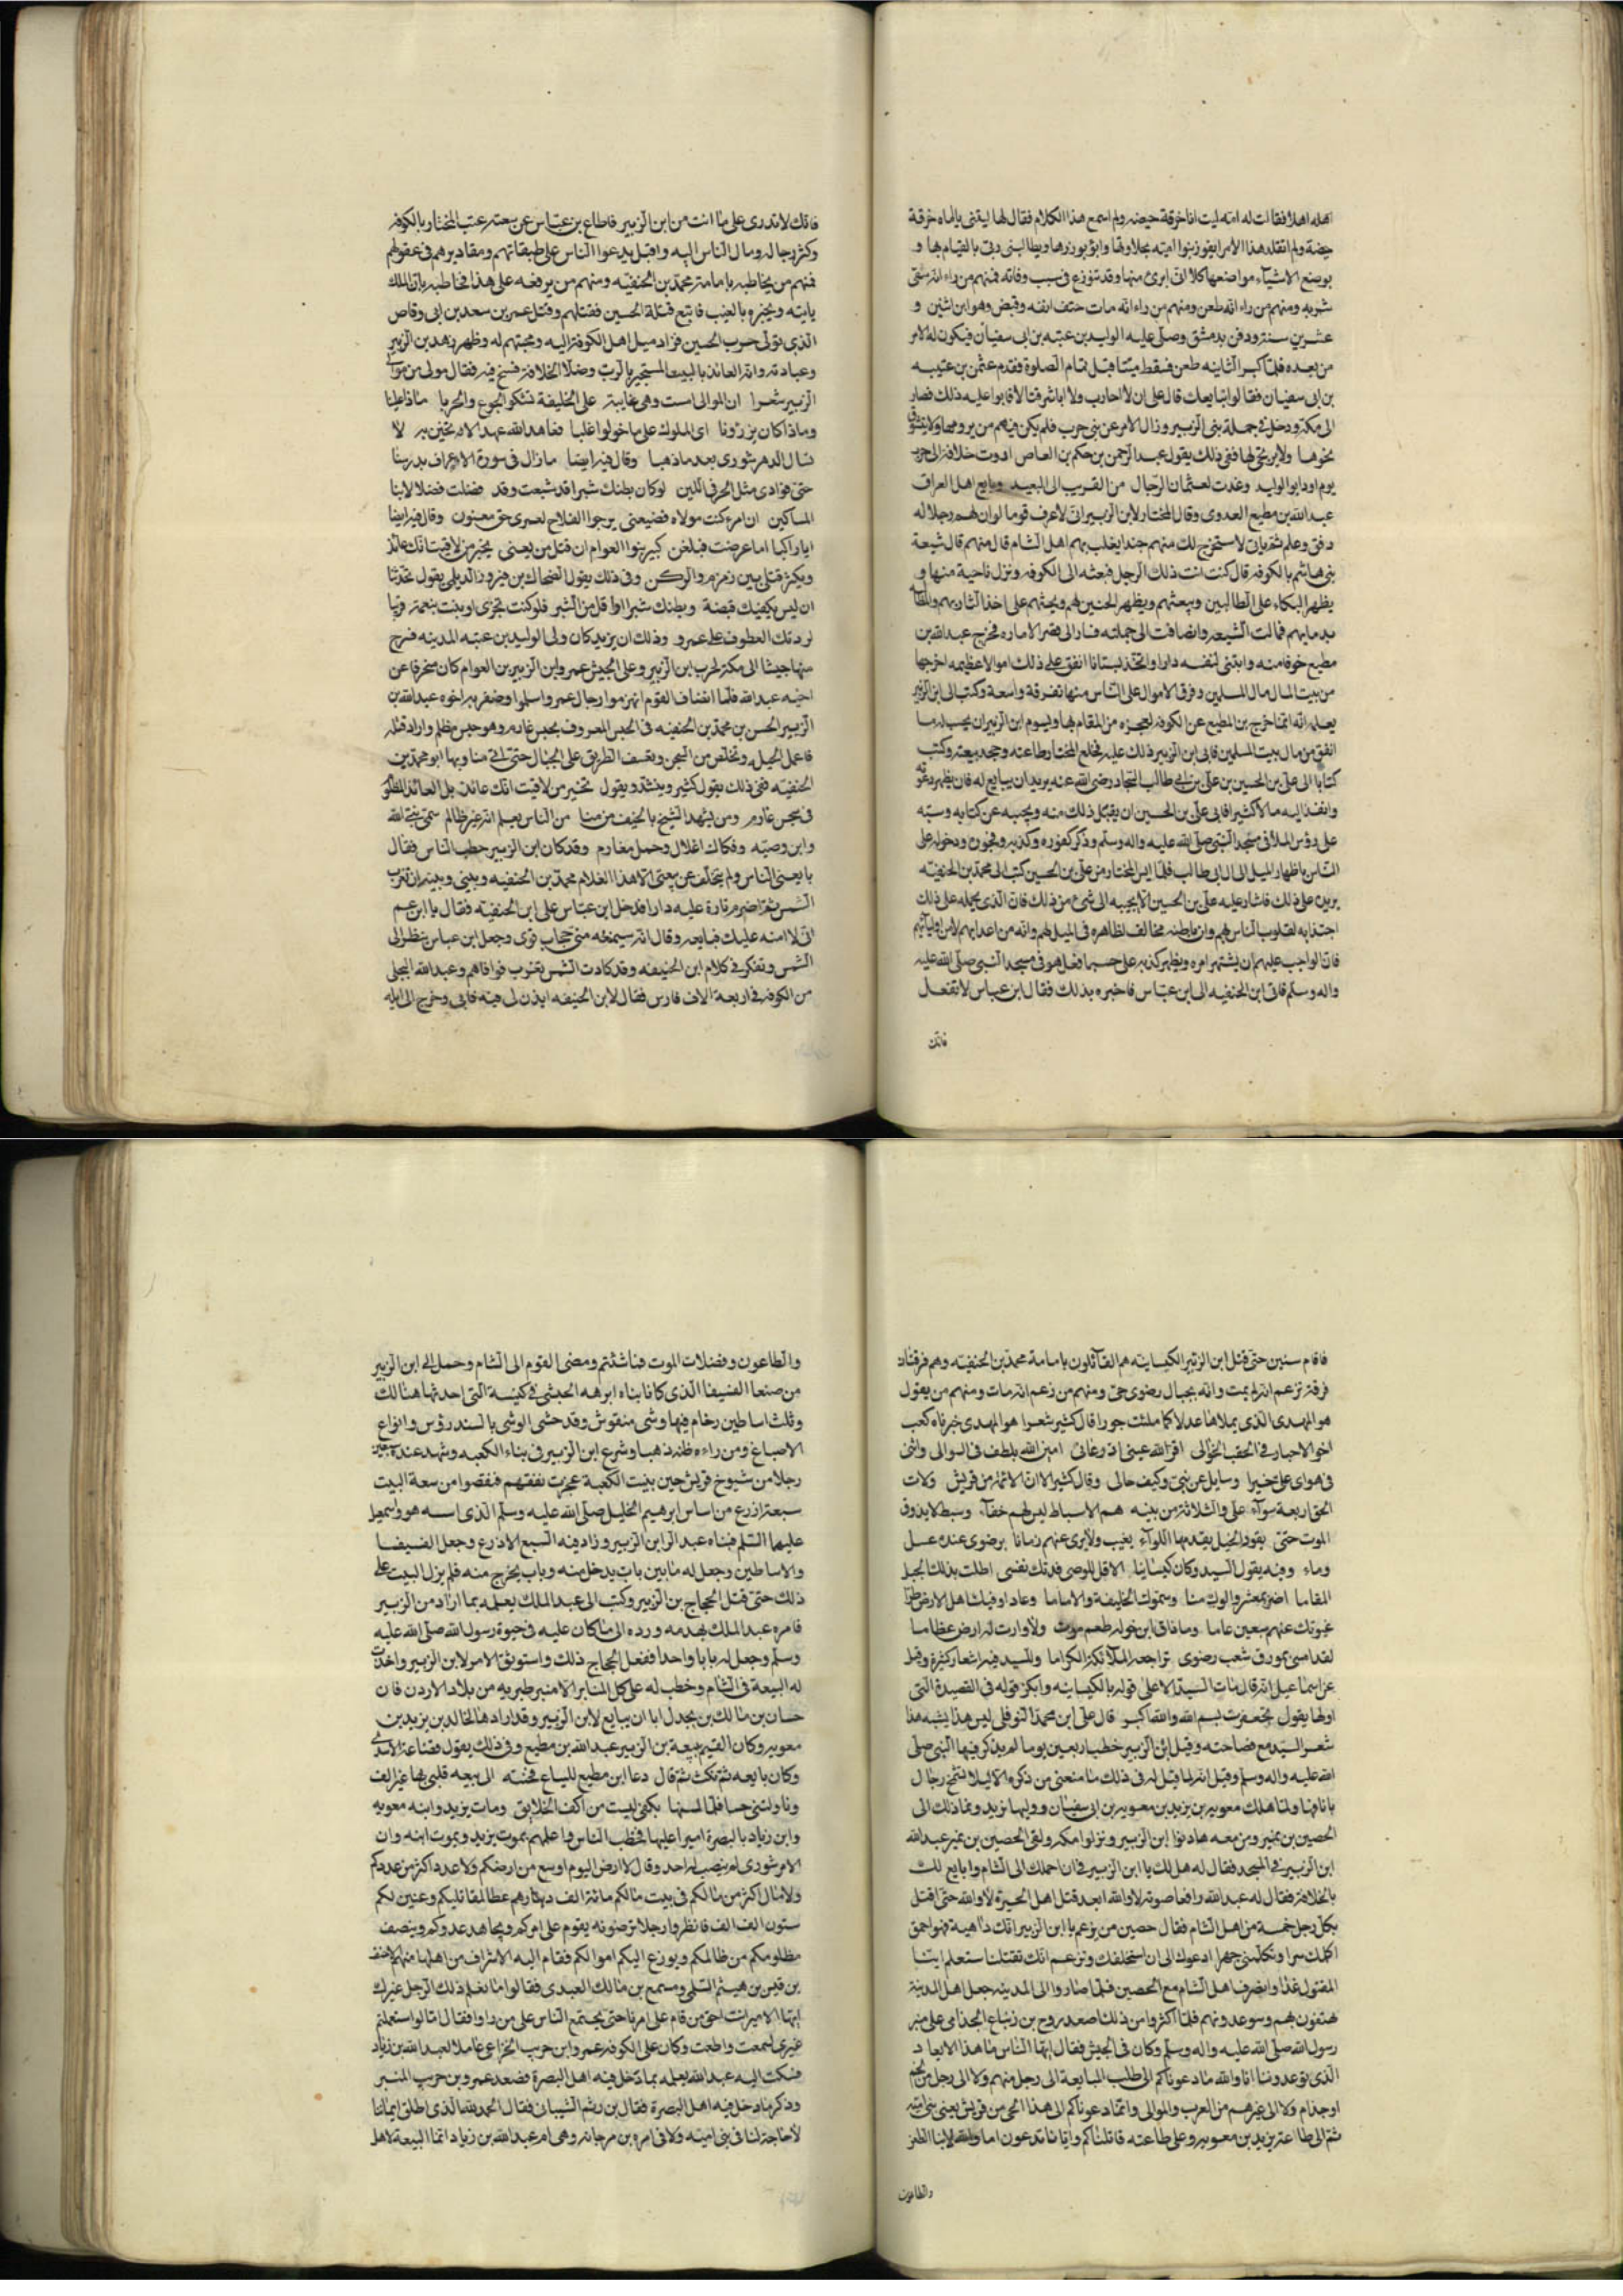 اهله اهلا فقالت له امه ليت انا خرقة حيضة ولم اسمع هذا الكلام فقال لها ليتنى يااماه خرقة
حيضة ولم اتقلد هذا الامر ايفوز بنوا اميه بحلاوتها وابؤ بوزرها ويطالبنى ربى بالقيام بها و
بوضع الاشياء مواضعها كلا انى ابرئ منها وقد تنوزع فى سبب وفاته فمنهم من راء انه سقى
شربه ومنهم من راء انه طعن ومنهم من راء انه مات حتف انفه وقبض وهو ابن اثنين و
عشرين سنة ودفن بدمشق وصلى عليه الوليد بن عتبه بن ابى سفيان فيكون له الامر
من بعده فلما كبر الثانيه طعن فسقط ميتا قبل تمام الصلوة فقدم عثمن بن عتبه
بن ابى سفيان فقالوا نبايعك قال على ان لا احارب ولا اباشر قتالا فابوا عليه ذلك فصار
الى مكة ودخل فى جملة بنى الزبير وزال الامر عن بنى حرب فلم يكن فيهم من يرومها ولا يتشوق
نحوها ولا يرتجى لها ففى ذلك يقول عبد الرحمن بن حكم بن العاص
عبد الله بن مطيع العدوى وقال المختار لابن الزبير انى لاعرف قوما لو ان لهم رجلا له
رفق وعلم بما ياتى لاستخرج لك منهم جندا يغلب بهم اهل الشام قال منهم قال شيعة
بنى هاشم بالكوفه قال كنت انت ذلك الرجل فبعثه الى الكوفه ونزل ناحية منها و
يظهر البكاء على الطالبين وشيعتهم ويظهر الحنين لهم ويحثهم على اخذ الثار بهم والمطالبه
بدمايهم فمالت الشيعه وانضافت الى جملته فسار الى قصر الاماره فخرج عبد الله بن
مطيع خوفا منه وابتنى لنفسه دارا واتخذ بستانا انفق على ذلك اموالا عظيمه اخرجها
من بيت المال مال المسلمين وفرق الاموال على الناس منها تفرقة واسعة وكتب الى ابن الزبير
يعلمه انه انما خرج بن المطيع عن الكوفه لعجزه من المقام بها ويسوم ابن الزبير ان يحسب له بما
انفق من مال بيت المسلمين فابى ابن الزبير ذلك عليه فخلع المختار طاعته وجحد بيعته وكتب
كتابا الى على بن الحسين بن على بن ابى طالب السجاد رضى الله عنه يريد ان يبايع له
وانفذ اليه مالا كثيرا فابى على بن الحسين ان يقبل ذلك منه ويجيبه عن كتابه وسبه
على رؤس الملا فى مسجد النبى صلى الله عليه واله وسلم وذكر كفره وكذبه وفجوره ودخوله على
الناس باظهار الميل الى ال ابى طالب فلما ايس المختار من على بن الحسين كتب الى محمد بن الحنفيه
يريده على ذلك فاشار عليه على بن الحسين لا يجيبه الى شئ من ذلك فان الذى يحمله على ذلك
اجتذابه لقلوب الناس لهم وان باطنه مخالف لظاهره فى الميل لهم وانه من اعدايهم لا من اوليائهم
فان الواجب عليهم ان يشتهر امره ويظهر كذبه على حسب ما فعل هو فى مسجد النبى صلى الله عليه
واله وسلم فاتى ابن الحنفيه الى ابن عباس فاخبره بذلك فقال ابن عباس لا تفعل
فانك
فانك لا تدرى على ما انت من ابن الزبير فاطاع بن عباس عن المختار بالكوفه
وكثر رجاله ومال الناس اليه واقبل يدعوا الناس على طبقاتهم ومقاديرهم فى عقولهم
فمنهم من يخاطبه بامامة محمد بن الحنفيه ومنهم من يرفعه على هذا فخاطبه بان الملك
ياتيه ويخبره بالغيب فاتبع قتلة الحسين فقتلهم وقتل عمر بن سعد بن ابى وقاص
الذى تولى حرب الحسين فزاد ميل اهل الكوفة اليه ومحبتهم له وظهر زهد بن الزبير
وعبادته وانه العائذ بالبيت المستجير بالرب
الزبير شعرا ان الموالى امست وهى عاتبة على الخليفة تشكو الجوع والحربا ماذا علينا
وماذا كان يرزونا اى الملوك على ما حولوا غلبا
وقال فيه ايضا ما زال فى سورة الاعراف يدرسها
حتى فؤادى مثل الخز فى اللين لو كان بطنك شبرا قد شبعت وقد فضلت فضلا
المساكين ان امرء كنت مولاه فضيعنى يرجوا الفلاح لعمرى حق مغبون وقال فيه ايضا
ايا راكبا اما عرضت فبلغن كبير بنوا العوام ان قتل من يعنى تخبر من لاقيت انك عائذ
ويكثر قتلى بين زمزم والركن وفى ذلك يقول الضحاك بن فيروز الديلى يقول تخبرنا
ان ليس يكفيك قبضة وبطنك شبرا او اقل من الشبر
لردتك العطوف على عمرو وذلك ان يزيد كان ولى الوليد بن عتبه المدينه فسرح
منها جيشا الى مكة لحرب ابن الزبير وعلى الجيش عمرو ابن الزبير بن العوام كان منحرفا عن
اخيه عبد الله فلما القوم انهزموا رجال عمرو واسلموا وضفر به اخوه عبد الله بن
الزبير الحسن بن محمد بن الحنفيه فى الحبس المعروف بحبس عارم وهو حبس مظلم واراد قتله
فاعمل الحيله وتخلص من السجن وتعسف الطريق على الجبال حتى اتى منا وبها ابو محمد بن
الحنفيه ففى ذلك يقول كثير تخبر من لاقيت انك عائذ بل العائذ المظلوم
فى سجن عارم ومن يشهد الشيخ بالخيف من منا من الناس يعلم انه غير ظالم سمى نبى الله
وابن وصيه وفكاك اغلال وحمل مغارم وقد كان ابن الزبير خطب الناس فقال
بايعنى الناس ولم يتخلف عن بيعتى الا هذا الغلام محمد بن الحنفيه وبينى وبينه ان تغرب
الشمس ثم اضرم نارا عليه دارا فدخل ابن عباس على ابن الحنفيه فقال يا ابن عم
انى لا امنه عليك فبايعه وقال انه سيمنعه منى حجاب قوى وجعل ابن عباس ينظر الى
الشمس وتفكر فى كلام ابن الحنفيه وقد كادت الشمس تغرب فوافاهم وعبد الله البجلى
من الكوفه فى اربعة الاف فارس فقال لابن الحنفيه ايذن لى فيه فابى وخرج الى ايله
فاقام سنين حتى قتل ابن الزبير الكيسانيه هم القائلون بامامة محمد بن الحنفيه وهم فرقتان
فرقة تزعم انه لم يمت وانه بجبال رضوى حى ومنهم من زعم انه مات ومنهم من يقول
هو المهدى الذى يملاها عدلا كما ملئت جورا قال كثير شعرا هو المهدى خبرناه كعب
اخو الاحبار فى الحقب الخوالى اقر الله عينى اذ دعانى امين الله يلطف فى السوالى واثنى
فى هواى على خيرا وسايل عن بنى وكيف حالى وقال كثير الا ان الائمة من قريش ولات
الحق اربعة سوآء على والثلاثة من بينه هم الاسباط ليس لهم خفاء وسبط لا يذوق
الموت حتى يقود الخيل يقدمها اللوآء يغيب ولا يرى عنهم زمانا برضوى عنده عسل
وماء وفيه يقول السيد وكان كيسانيا الا قل للوصى فدتك نفسى اطلت بذلك الجبل
المقاما اضر بمعشر والوك منا وسموك الخليفة والاماما وعادوا فيك اهل الارض طرا
غيوبك عنهم سبعين عاما وما ذاق ابن خوله طعم موت ولا وارت له ارض عظاما
لقد امسى بمورق شعب رضوى تراجعه الملائكة الكراما وللسيد فيه اشعار كثيرة
اولها يقول تجعفرت بسم الله والله اكبر قال على ابن محمد النوفلى ليس هذا يشبه هذا
شعر السيد مع فصاحته وقيل ابن الزبير خطب اربعين يوما لم يذكر فيها النبى صلى
الله عليه واله وسلم وقيل انه لما قيل له فى ذلك ما منعنى من ذكره الا ليلا تشمخ رجال
بانافها ولما هلك معويه بن يزيد بن معويه بن ابى سفيان ووليها يزيد ونما ذلك الى
الحصين بن نمير ومن معه هادنوا ابن الزبير ونزلوا مكه ولقى الحصين بن نمير عبد الله
ابن الزبير فى المسجد فقال له هل لك يا ابن الزبير فى ان احملك الى الشام وابايع لك
بالخلافة فقال له عبد الله رافعا صوته لا والله ابعد قتل اهل الحره لا والله حتى اقتل
بكل رجل خمسة من اهل الشام فقال حصين من يزعم يا ابن الزبير انك داهية فهو احمق
اكلمك سرا وتكلمنى جهرا ادعوك الى ان استخلفك وتزعم انك تقتلنا ستعلم اينا
المقتول غدا وانصرف اهل الشام مع الحصين فلما صاروا الى المدينه جعل اهل المدينة
يهتفون بهم وتوعدونهم فلما اكثروا من ذلك صعد روح بن زنباع الجذامى على منبر
رسول الله صلى الله عليه واله وسلم وكان فى الجيش فقال ايها الناس ما هذا الايعاد
الذى توعدوننا انا والله ما دعوناكم الى طلب المبايعة الى رجل منهم ولا الى رجل من لخم
او جذام ولا الى غيرهم من العرب والموالى وانما دعوناكم الى هذا الحى من قريش يعنى بنى اميه
ثم الى طاعة يزيد بن معويه وعلى طاعته قاتلناكم وايانا تدعون اما والله لابنا الطعن
والطاعون
والطاعون وفضلات الموت فما شئتم ومضى القوم الى الشام وحمل الى ابن الزبير
من صنعا الفسيفسا الذى كان بناه ابرهه الحبشى فى كنيسة التى احدثها هنالك
وثلث اساطين رخام فيها وشى منقوش وقد حشى الوشى بالسندروس وانواع
الاصباغ ومن راءه ظنه ذهبا وشرع ابن الزبير فى بناء الكعبه وشهد عنده سبعين
رجلا من شيوخ قريش حين بنيت الكعبة عجزت نفقتهم فنقصوا من سعة البيت
سبعة اذرع من اساس ابرهيم الخليل صلى الله عليه وسلم الذى اسسه هو واسمعيل
عليهما السلم فبناه عبد الله ابن الزبير وزاد فيه السبع الاذرع وجعل الفسيفسا
والاساطين وجعل له بابين باب يدخل منه وباب يخرج منه فلم يزل البيت على
ذلك حتى قتل الحجاج بن الزبير وكتب الى عبد الملك يعلمه بما اراد من الزبير
فامره عبد الملك بهدمه ورده الى ما كان عليه فى حيوة رسول الله صلى الله عليه
وسلم وجعل له بابا واحدا ففعل الحجاج ذلك واستوثق الامر لابن الزبير واخذت
له البيعة فى الشام وخطب له على كل المنابر الا منبر طبريه من بلاد الاردن فان
حسان بن مالك بن بجدل ابا ان يبايع لابن الزبير وقد ارادها لخالد بن يزيد بن
معويه وكان القيم ببيعة بن الزبير عبد الله بن مطيع وفى ذلك يقول فضاعة الاسدى
وكان بايعه ثم نكث ثم قال دعا ابن مطيع للبياع فجئته الى بيعه قلبى بها غير الف
وناولنى خسا فلما لمستها بكفى ليست من اكف الخلايق ومات يزيد وابنه معويه
وابن زياد بالبصرة اميرا عليها فخطب الناس واعلمهم بموت يزيد وبموت ابنه وان
الامر شورى لم ينصب له احد وقال لا ارض اليوم اوسع من ارضكم ولا عدد اكثر من عددكم
ولا مال اكثر من مالكم فى بيت مالكم مائة الف الف درهم عطا لمقاتليكم وعنين لكم
ستون الف الف فانظروا رجلا ترضونه يقوم على امركم ويجاهد عدوكم وينصف
مظلومكم من ظالمكم ويوزع اليكم اموالكم فقام اليه الاشراف من اهلها منهم الاحنف
بن قيس بن هيثم السلمى ومسمع بن مالك العبدى فقالوا ما نعلم ذلك الرجل غيرك
ايها الامير انت احق من قام على امرنا حتى يجتمع الناس على من داوا فقال اما لو استعملتم
غيرى لسمعت واطعت وكان على الكوفه عمرو ابن حريث الخزاعى عاملا لعبيد الله بن زياد
فكتب اليه عبد الله يعلمه بما دخل فيه اهل البصرة فصعد عمرو بن حريث المنبر
وذكر ما دخل فيه اهل البصرة فقال بن رشم الشيبان فقال الحمد لله الذى اطلق ايماننا
لا حاجة لنا فى بنى اميه ولا فى امره بن مرجانه وهى ام عبد الله بن زياد انما البيعة لاهل